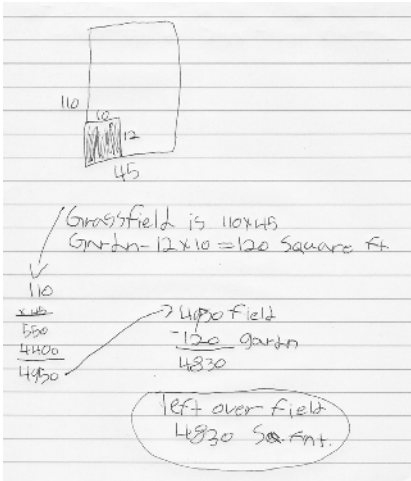 110
10
12
45
Grassfield is 110x45
Gardn - 12x10 = 120 Square Ft
110
x 45
550
4400
4950
4950 field
-120 gardn
4830
left over field
4830 Sq Fnt.